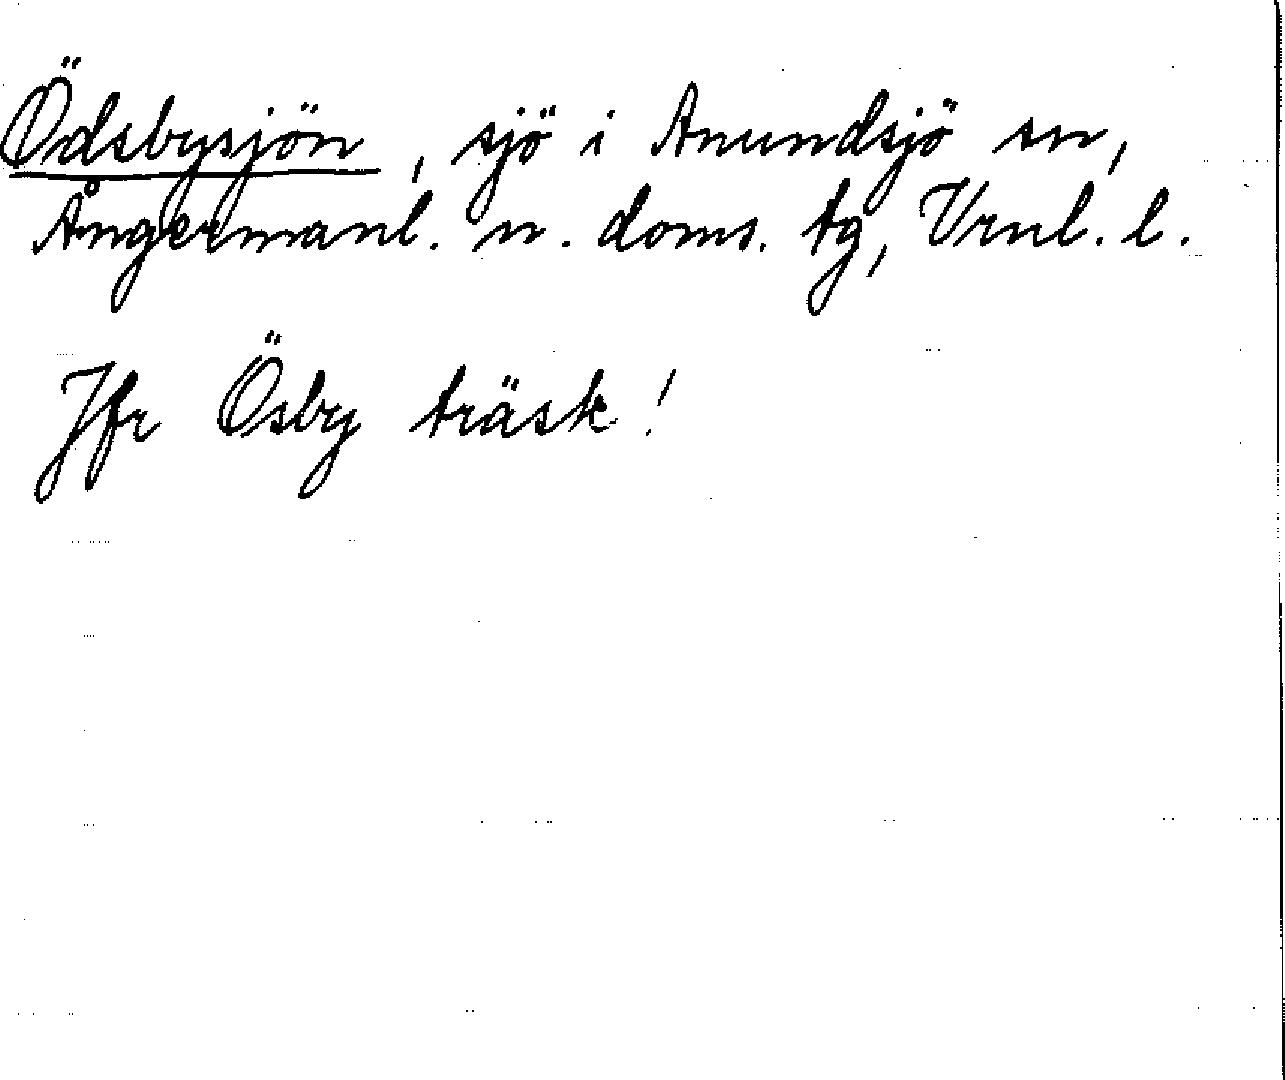 Ödsbysjön, sjö i Anundsjö sn,
Ångermanl. n. doms. tg, Vrnl. l.
Jfr Ösby träsk!